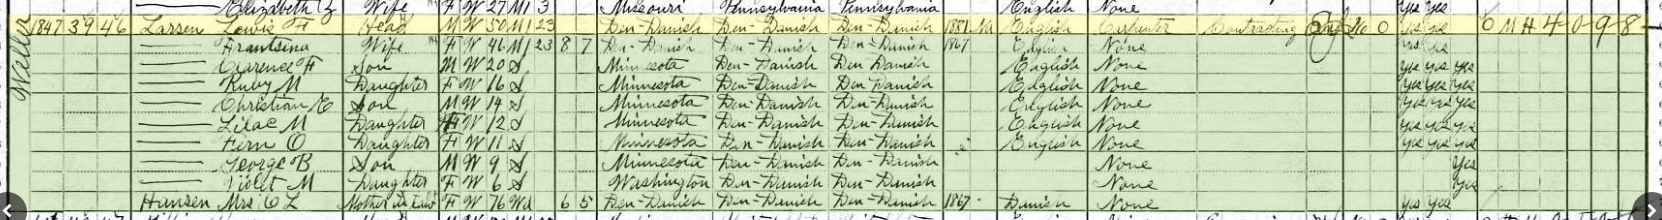 Elizabeth Wife F W 27 M1 3 Missouri Pennsylvania Pennsylvania English None yes yes
Weller 1847 39 46 Larsen Lewis F Head M W 50 M1 23 Den-Danish Den-Danish Den-Danish 1881 Na English Carpenter Contracting No 0 yes yes O M H 4-0-9-8
Frantsina Wife F W 46 M1 23 8 7 Den-Danish Den-Danish Den-Danish 1867 English None yes yes
Clarence F Son M W 20 S Minnesota Den-Danish Den Danish English None yes yes yes
Ruby M Daughter F W 16 S Minnesota Den-Danish Den Danish English None yes yes yes
Christian E Son M W 14 S Minnesota Den-Danish Den-Danish English None yes yes yes
Lilac M Daughter F W 12 S Minnesota Den-Danish Den-Danish English None yes yes yes
Fern O Daughter F W 11 S Minnesota Den-Danish Den-Danish English None yes yes yes
George B Son M W 9 S Minnesota Den-Danish Den-Danish None yes
Violet M Daughter F W 6 S Washington Den-Danish Den-Danish None yes
Hansen Mrs C L Mother in Law F W 76 Wd 6 5 Den-Danish Den-Danish Den-Danish 1867 Danish None yes yes